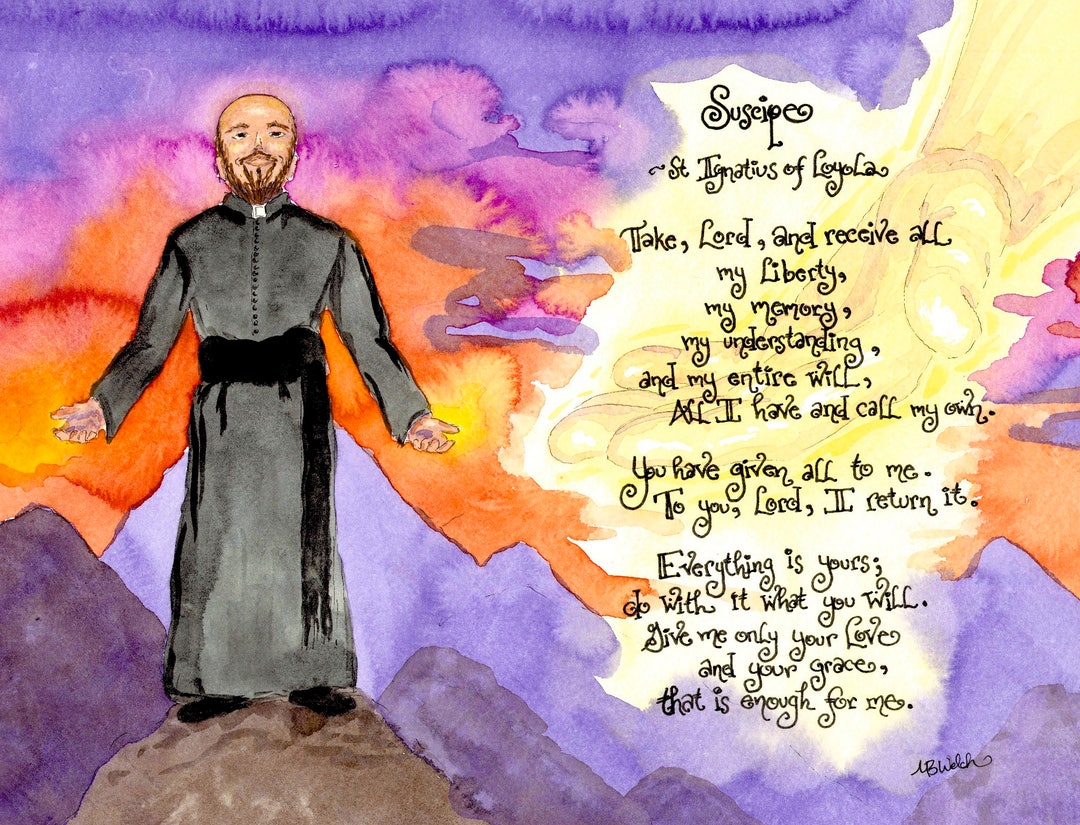 Suscipe
~ St Ignatius of Loyola
Take, Lord, and receive all
my liberty,
my memory,
my understanding,
and my entire will,
All I have and call my own.
You have given all to me.
To you, Lord, I return it.
Everything is yours;
do with it what you will.
Give me only your Love
and your grace,
that is enough for me.
MBWelch